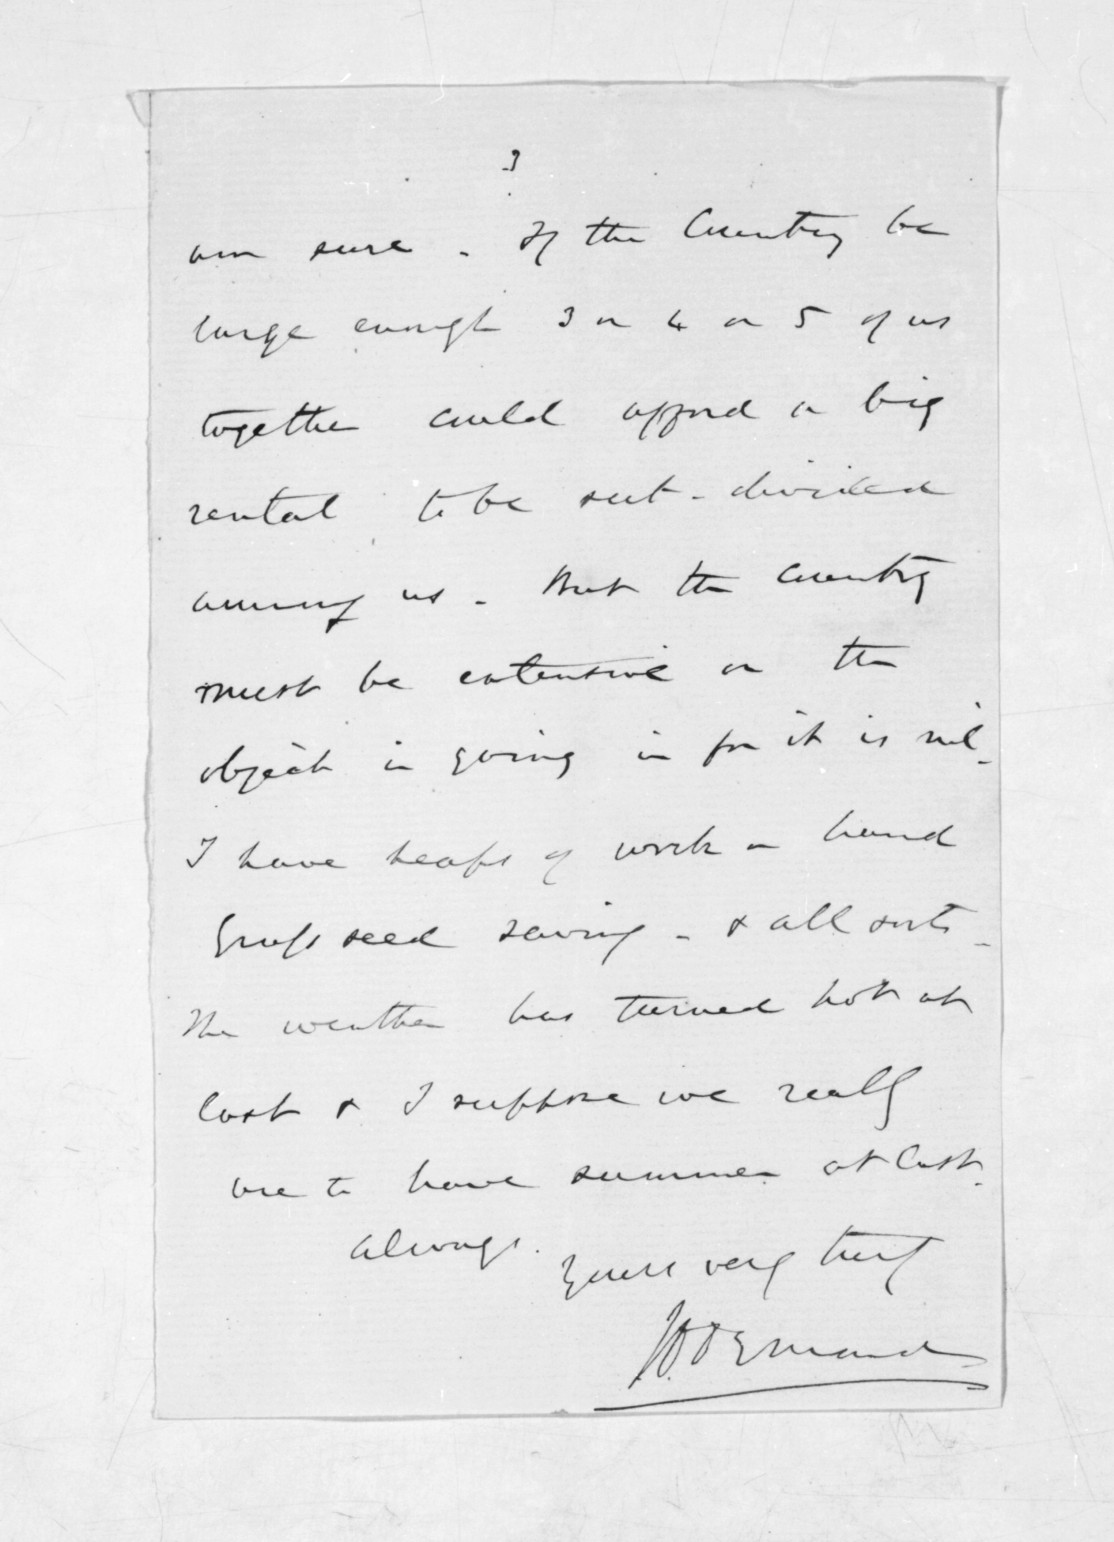 3
am sure. If the Country be
large enough 3 or 4 or 5 of us
together could afford a big
rental to be sub-divided
among us. But the country
must be extensive or the
object in going in for it is nil.
I have heaps of work on hand
Grass seed saving - & all sorts -
The weather has turned hot at
last & I suppose we really
are to have summer at last.
Always.
Yours very truly